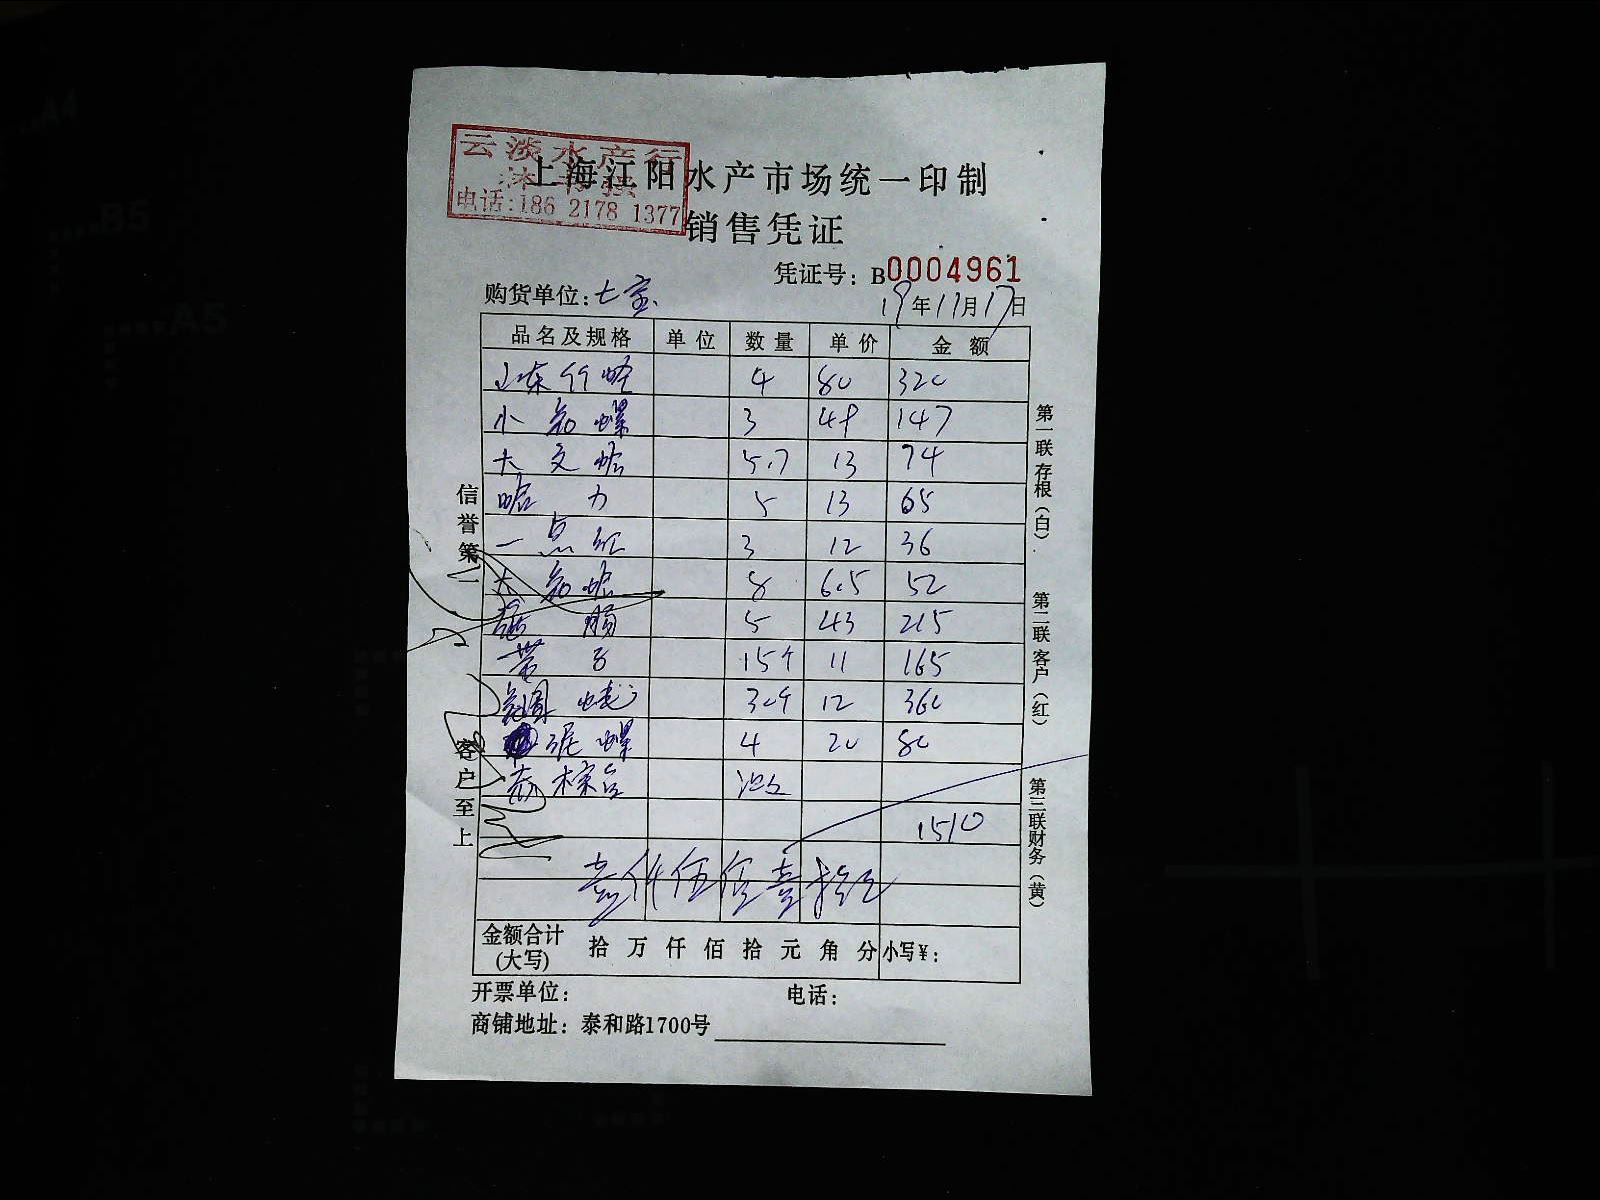 云淡水产行
电话:186 2178 1377
上海江阳水产市场统一印制
销售凭证
凭证号：B0004961
购货单位:七宝
19年11月17日
品名及规格 单位 数量 单价 金额
山东竹蛏 4 80 320
小 螺 3 49 147
大文蛤 5.7 13 74
哈力 5 13 65
一点红 3 12 36
大 蛤 8 6.5 52
5 43 215
带子 15个 11 165
30个 12 360
泥螺 4 20 80
1510
壹仟伍佰壹拾元
金额合计(大写) 拾万仟佰拾元角分 小写¥:
开票单位: 电话:
商铺地址：泰和路1700号
信誉第一
客户至上
第一联存根(白)
第二联客户(红)
第三联财务(黄)
A4
B5
A5